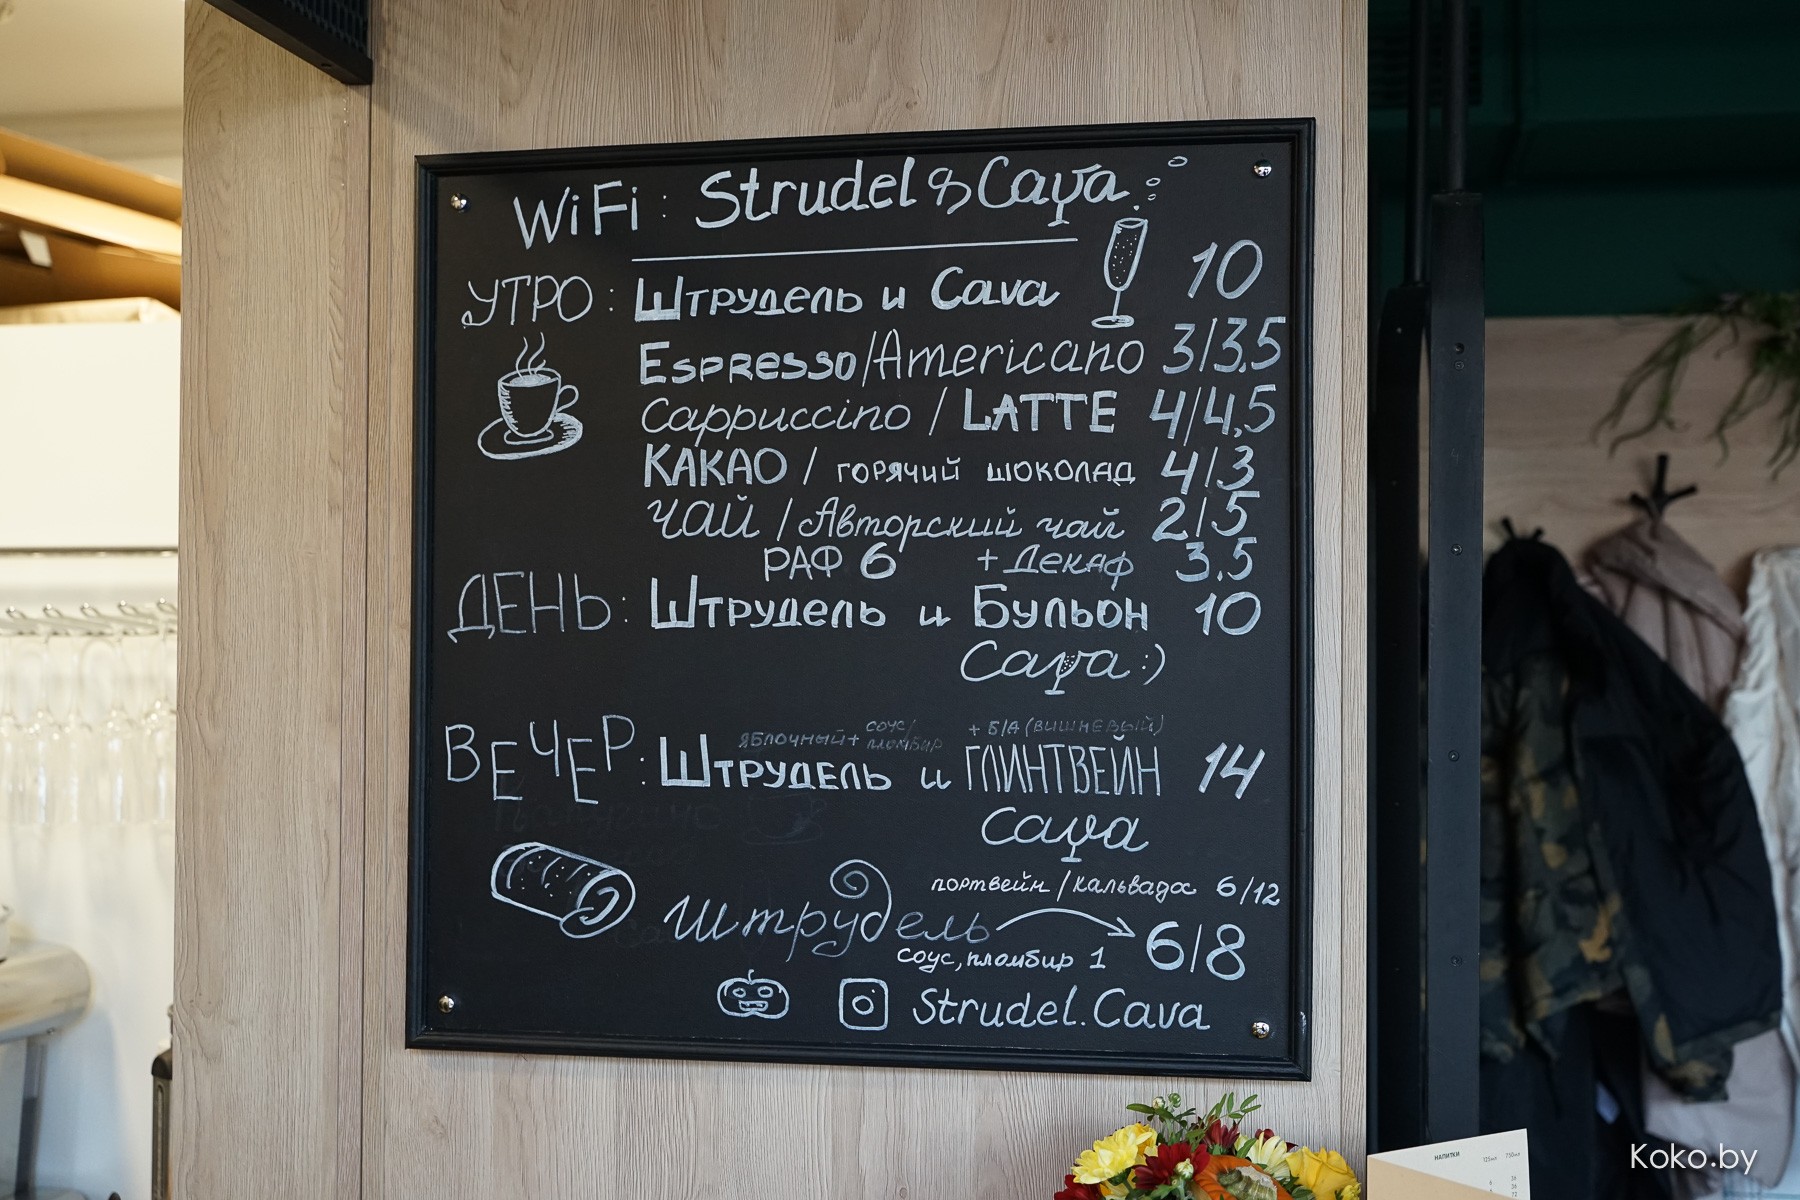 WiFi: Strudel & Cava
УТРО: Штрудель и Cava 10
Espresso/Americano 3/3,5
Cappuccino / LATTE 4/4,5
КАКАО / горячий шоколад 4/3
ЧАЙ / Авторский чай 2/5
РАФ 6 + Декаф 3.5
ДЕНЬ: Штрудель и Бульон 10
Cava :)
яблочный + соус/пломбир + Б/А (вишневый)
ВЕЧЕР: Штрудель и ГЛИНТВЕЙН 14
Cava
портвейн / кальвадос 6/12
штрудель 6/8
соус, пломбир 1
Strudel.Cava
НАПИТКИ
Koko.by